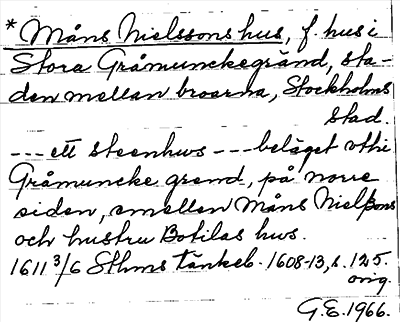 * Måns Nielssons hus, f. hus i
Stora Gråmunckegränd, sta-
den mellan broarna, Stockholms
stad.
--- ett steenhws --- beläget vthi
Gråmuncke grend, på norre
siden, emellan Måns Nielßons
och hustru Botilas hws.
1611 3/6 Sthms tänkeb. 1608-13, s. 125.
orig.
G.E. 1966.